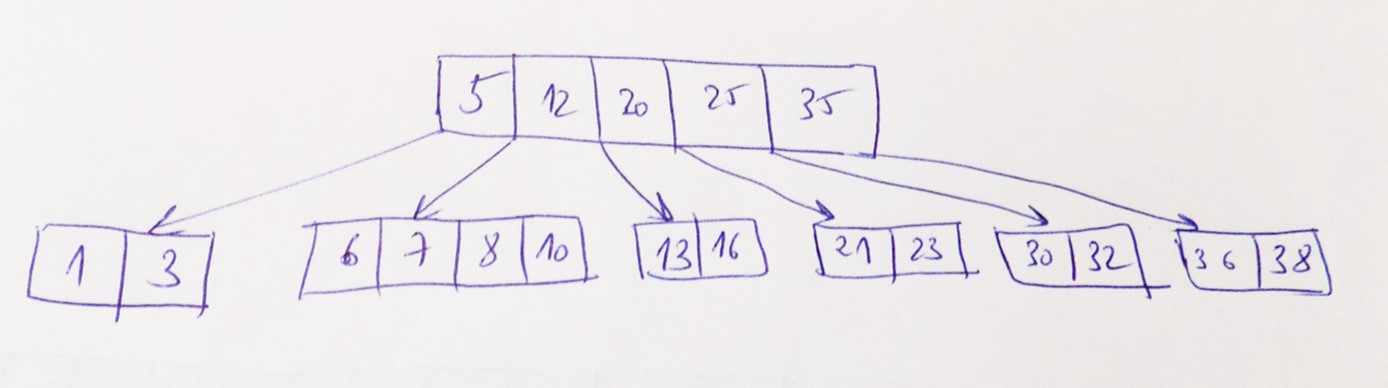 5 12 20 25 35
1 3 6 7 8 10 13 16 21 23 30 32 36 38